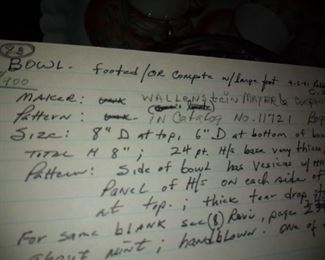 23
BOWL. footed/OR Compote w/large foot 9-2-91
900
MAKER: WALLENSTEIN MAYER
Pattern: IN Catalog No. 11721
SIZE: 8" D at top, 6" D at bottom of bow
TOTAL H 8"; 24 pt. H/s base very thick
Pattern: Side of bowl has vesicas w/
Panel of H/s on each side of
at top.; thick tear drop
For same BLANK see page
about mint; handblown. one of